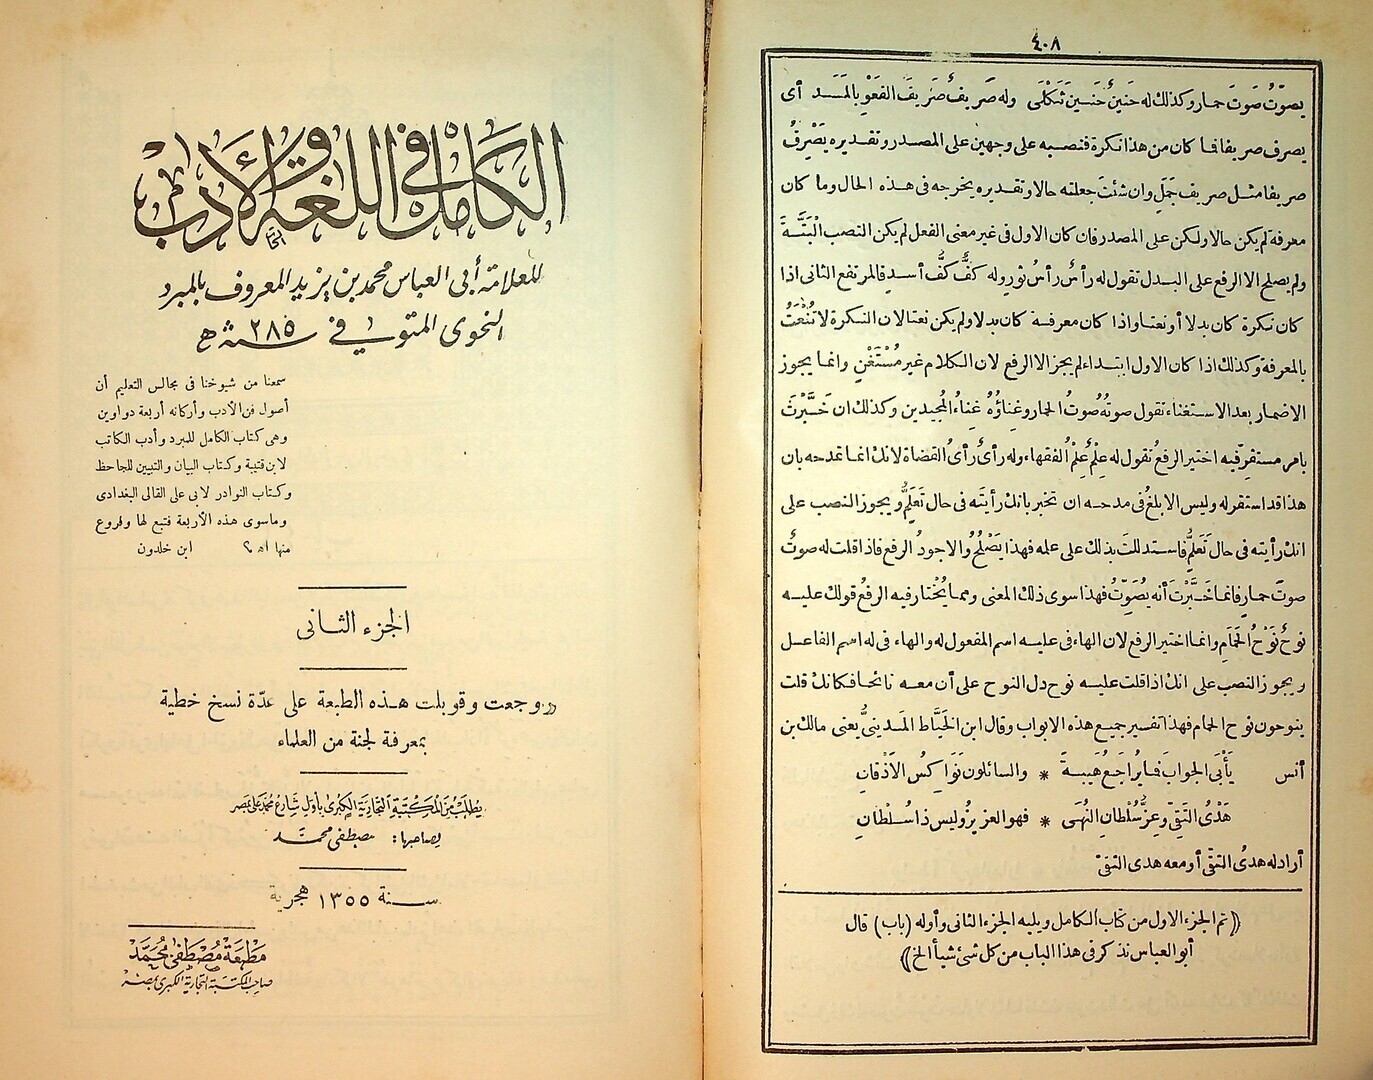 ٤٠٨
يصوّتُ صَوتَ حمار وكذلك له حَنينٌ حَنينَ ثَكْلَى وله صَريفٌ صَريفَ القَعْوِ بالمَسَد أى
يصرف صريفا فما كان من هذا نكرة فنصبه على وجهين على المصدر وتقديره يَصْرِفُ
صريفا مثل صريف جَمَل وان شئتَ جعلته حالا وتقديره يخرجه فى هذه الحال وما كان
معرفة لم يكن حالا ولكن على المصدر فان كان الاول فى غير معنى الفعل لم يكن النصب البَتَّةَ
ولم يصلح الا الرفع على البدل تقول له رأسٌ رأسُ ثور وله كفٌّ كفُّ أسد فالمرتفع الثانى اذا
كان نكرة كان بدلا أو نعتا واذا كان معرفة كان بدلا ولم يكن نعتا لان النكرة لا تُنْعَتُ
بالمعرفة وكذلك اذا كان الاول ابتداء لم يجز الا الرفع لان الكلام غير مُسْتَغْنٍ وانما يجوز
الاضمار بعد الاستغناء تقول صوتُهُ صوتُ الحمار وغناؤُهُ غناءُ المُجيدين وكذلك ان خَبَّرْتَ
بامر مستقرّ فيه اختير الرفعُ تقول له علْمٌ علْمُ الفقهاء وله رأىٌ رأىُ القضاة لانك انما تمدحه بان
هذا قد استقر له وليس الابلغُ فى مدحه ان تخبر بانك رأيته فى حال تَعَلُّمٍ ويجوز النصب على
انك رأيته فى حال تَعَلُّمٍ فاستدللتَ بذلك على علمه فهذا يَصْلُحُ والاجودُ الرفع فاذا قلت له صوتٌ
صوتَ حمار فانما خَبَّرْتَ أنه يُصَوِّتُ فهذا سوى ذلك المعنى ومما يُخْتار فيه الرفعُ قولك عليه
نوحٌ نَوْحُ الحَمَام وانما اختير الرفع لان الهاء فى عليه اسم المفعول له والهاء فى له اسم الفاعل
ويجوز النصب على انك اذا قلت عليه نوح دل النوح على أن معه نائحا فكانك قلت
ينوحون نوح الحمام فهذا تفسير جميع هذه الابواب وقال ابن الخَيَّاط المَدينىُّ يعنى مالك بن
أنس يأْبَى الجوابَ فما يُراجَعُ هَيبةً * والسائلون نَواكِسُ الأذْقانِ
هَدْىُ التَقِىّ وعزُّ سُلْطانِ النُهَى * فهو العزيزُ وليس ذا سُلطانِ
أراد له هدىُ التقىّ أو معه هدى التقىّ
﴿تم الجزء الاول من كتاب الكامل ويليه الجزء الثانى وأوله (باب) قال
أبو العباس نذكر فى هذا الباب من كل شئ شيأ الخ﴾
الكامل فى اللغة والأدب
للعلامة أبى العباس محمد بن يزيد المعروف بالمبرد
النحوى المتوفى فى سنة ٢٨٥ هـ
سمعنا من شيوخنا فى مجالس التعليم أن
أصول فن الأدب وأركانه أربعة دواوين
وهى كتاب الكامل للمبرد وأدب الكاتب
لابن قتيبة وكتاب البيان والتبيين للجاحظ
وكتاب النوادر لابى على القالى البغدادى
وما سوى هذه الأربعة فتبع لها وفروع
منها اهـ ابن خلدون
الجزء الثانى
روجعت وقوبلت هذه الطبعة على عدّة نسخ خطية
بمعرفة لجنة من العلماء
يُطلَبُ مِنَ المَكتبَةِ التِّجَاريَةِ الكُبرى بأوّل شارع محمد على بمصر
لصاحبها: مصطفى محمّد
سنة ١٣٥٥ هجرية
مطبعة مُصْطفى مُحمَّد
صاحب المكتبة التجارية الكبرى بمصر